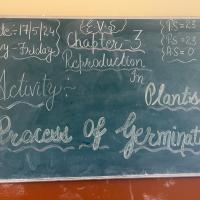 te:-17/5/24
E.V.S
RS=23
y-Friday
Chapter-3
PS=23
Reproduction
AS=0
In
Activity:-
Plants
Process Of Germinat